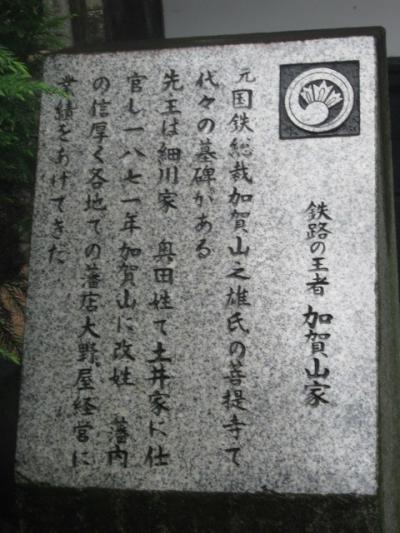 鉄路の王者 加賀山家
元国鉄総裁加賀山之雄氏の菩提寺て
代々の墓碑がある
先王は細川家 奥田姓て土井家に仕
官し一八七一年加賀山に改姓 藩内
の信厚く各地ての藩店大野屋経営に
業績をあげてきた